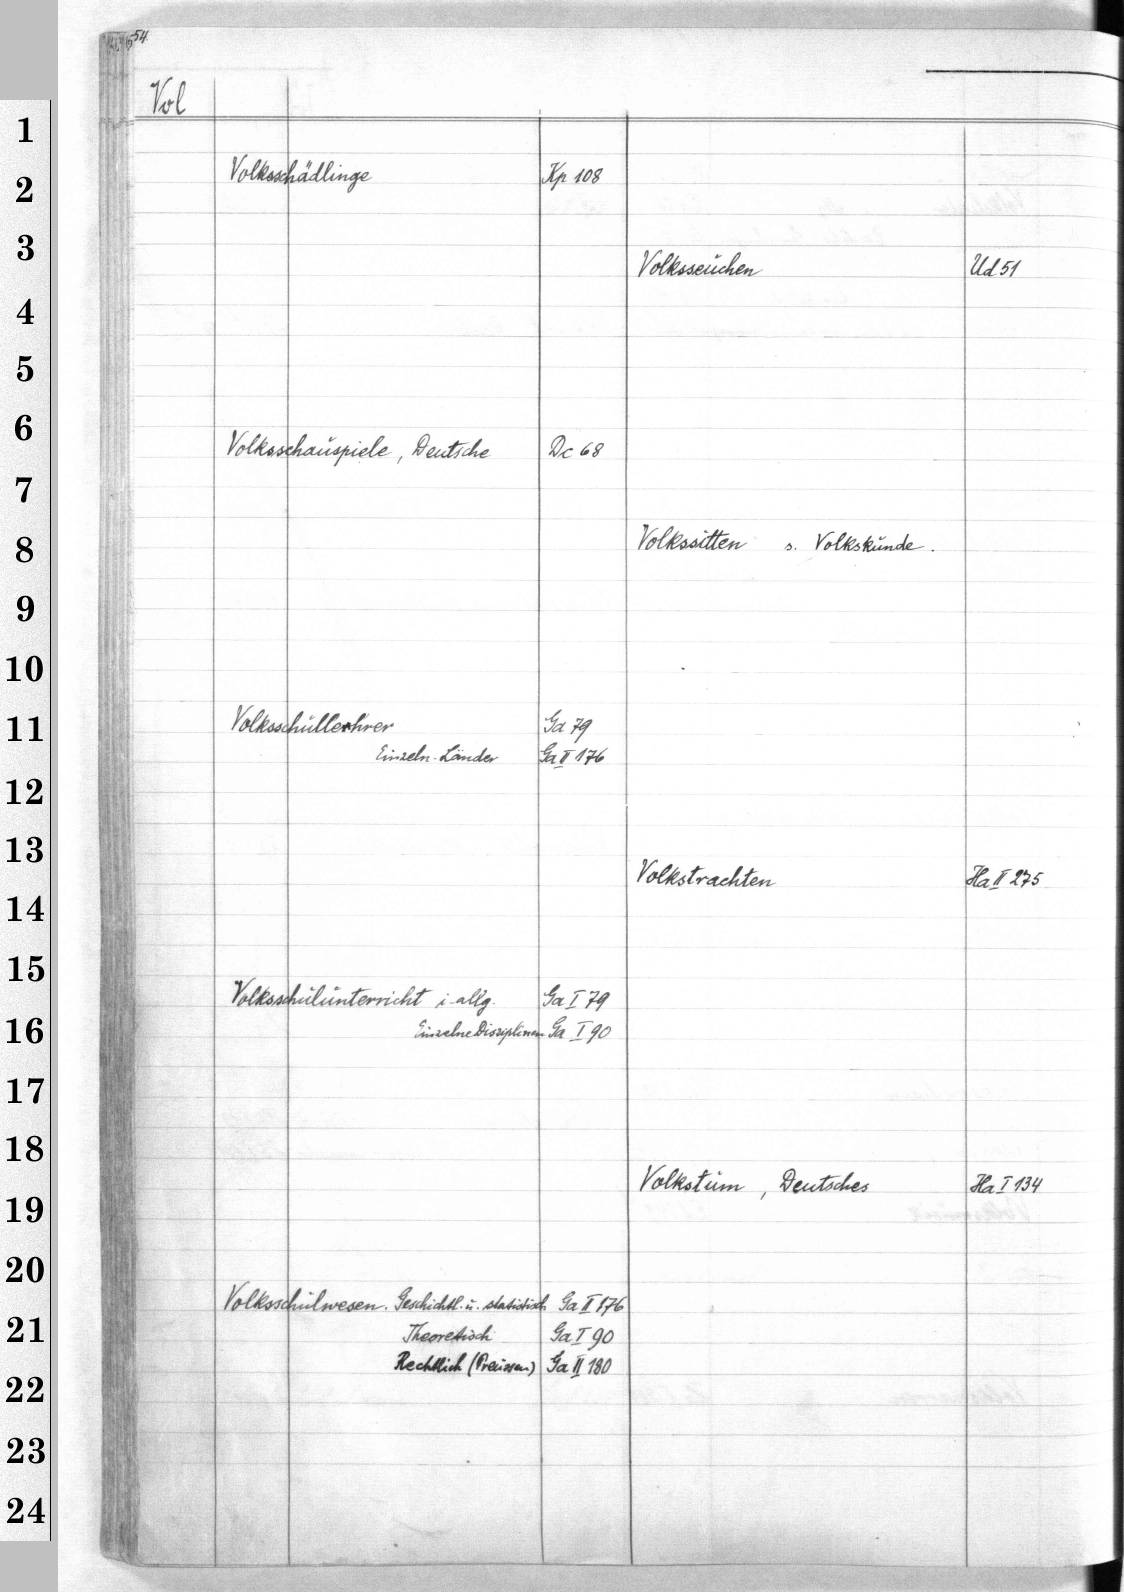 54
Vol
1
2
3
4
5
6
7
8
9
10
11
12
13
14
15
16
17
18
19
20
21
22
23
24
Volksschädlinge Kp 108
Volksschauspiele, Deutsche Dc 68
Volksschullehrer Ga 79
Einzeln. Länder Ga II 176
Volksschulunterricht i. allg. Ga I 79
Einzelne Disziplinen Ga I 90
Volksschulwesen. Geschichtl. u. statistisch Ga II 176
Theoretisch Ga I 90
Rechtlich (Preussen) Ga II 180
Volksseuchen Ud 51
Volkssitten s. Volkskunde.
Volkstrachten Ha II 275
Volkstum, Deutsches Ha I 134